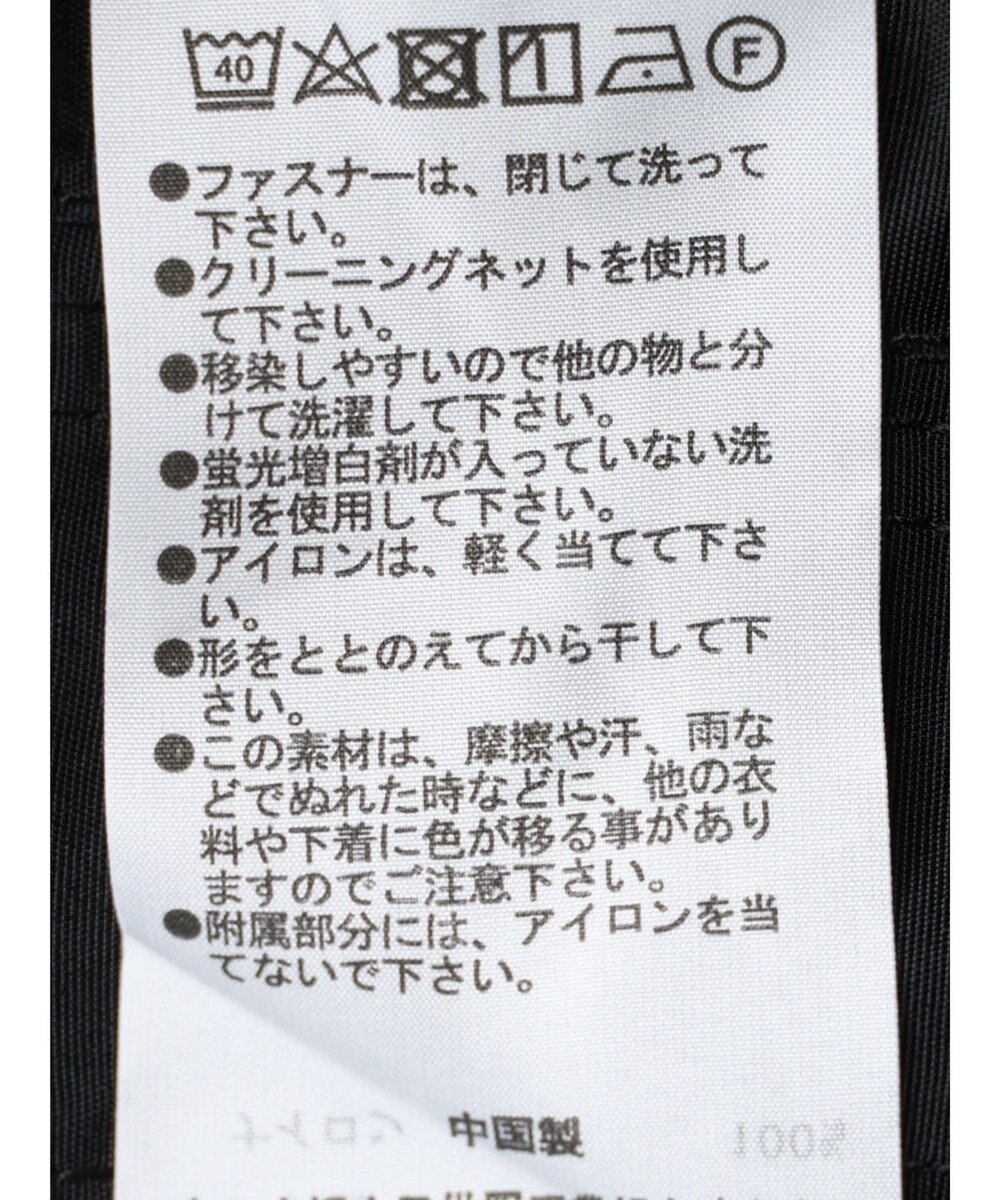 40 F
●ファスナーは、閉じて洗って
下さい。
●クリーニングネットを使用し
て下さい。
●移染しやすいので他の物と分
けて洗濯して下さい。
●蛍光増白剤が入っていない洗
剤を使用して下さい。
●アイロンは、軽く当てて下さ
い。
●形をととのえてから干して下
さい。
●この素材は、摩擦や汗、雨な
どでぬれた時などに、他の衣
料や下着に色が移る事があり
ますのでご注意下さい。
●附属部分には、アイロンを当
てないで下さい。
ナイロン 中国製 100%